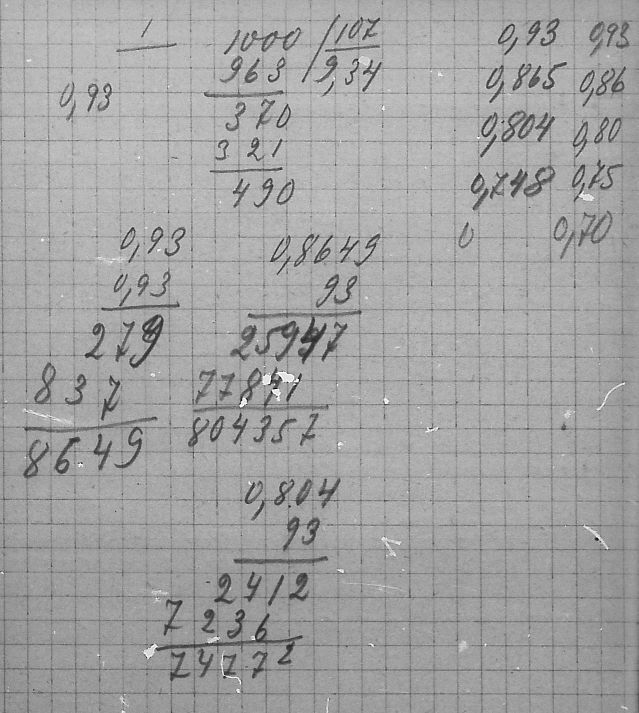 1
1000 107
963 9,34
370
321
490
0,93
0,93 0,93
0,865 0,86
0,804 0,80
0,748 0,75
0 0,70
0,93
0,93
279
837
8649
0,8649
93
25947
77841
804357
0,804
93
2412
7236
74772